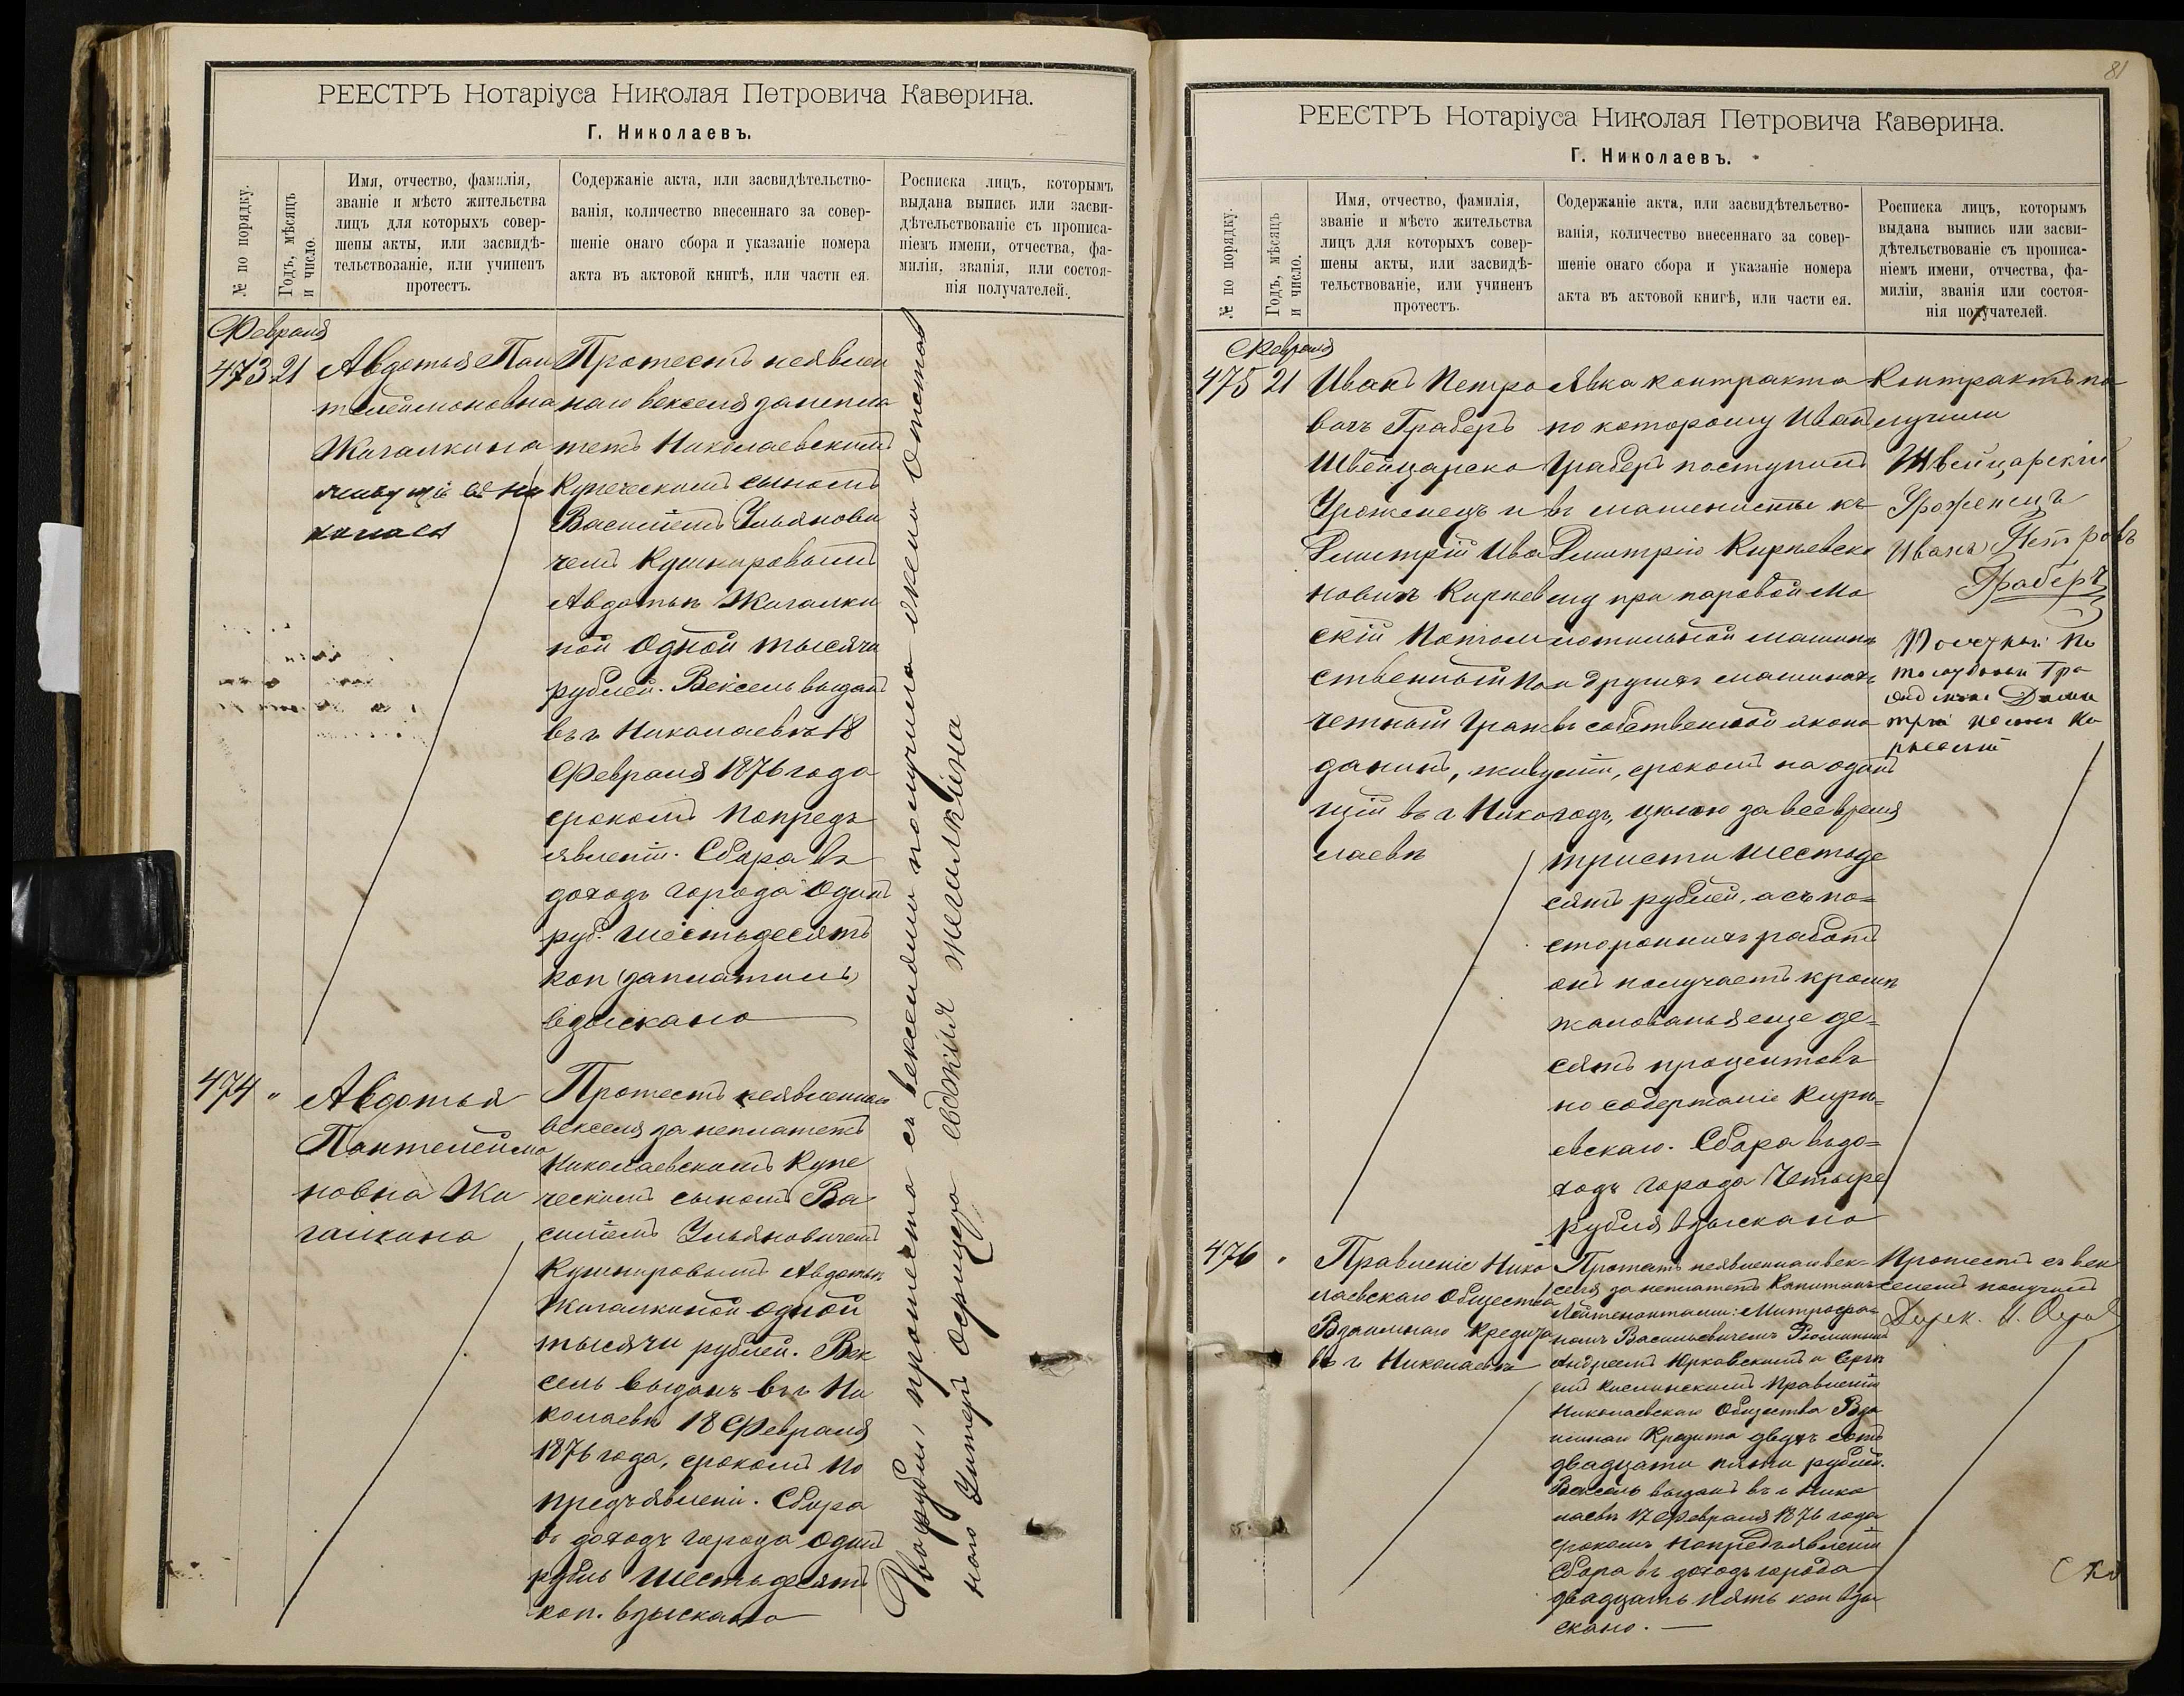 РЕЕСТРЪ Нотаріуса Николая Петровича Каверина.
Г. Николаевъ.
№ по порядку.
Годъ, мѣсяцъ
и число.
Имя, отчество, фамилія,
званіе и мѣсто жительства
лицъ для которыхъ совер-
шены акты, или засвидѣ-
тельствованіе, или учиненъ
протестъ.
Содержаніе акта, или засвидѣтельство-
ванія, количество внесеннаго за совер-
шеніе онаго сбора и указаніе номера
акта въ актовой книгѣ, или части ея.
Росписка лицъ, которымъ
выдана выпись или засви-
дѣтельствованіе съ прописа-
ніемъ имени, отчества, фа-
миліи, званія, или состоя-
нія получателей.
Февраля
473 21
Авдотья Пан
телеймоновна
Жигалкина
Протестъ неявлен
наго векселя занепла
тежъ Николаевскимъ
Купеческимъ сыномъ
Василіемъ Ульянови
чемъ Кушнировымъ
Авдотьѣ Жигалки
ной Одной тысячи
рублей. Вексель выданъ
въ г Николаевѣ 18
Февраля 1876 года
срокомъ Попредъ
явленіи. Сбора въ
доходъ города Одинъ
руб. Шестьдесятъ
коп (заплатилъ)
взыскано
474 "
Авдотья
Пантелеймо
новна Жи
галкина
Протестъ неявленнаго
векселя за неплатежъ
Николаевскимъ Купе
ческимъ сыномъ Ва
силіемъ Ульяновичемъ
Кушнировымъ Авдотьѣ
Жигалкиной одной
тысячи рублей. Век
сель выданъ въ г Ни
колаевѣ 18 Февраля
1876 года, срокомъ По
предъявленіи. Сбора
въ доходъ города Одинъ
рубль Шестьдесятъ
коп. взыскано
протеста съ векселями получила
Унтеръ Офицера Жигалкина
81
РЕЕСТРЪ Нотаріуса Николая Петровича Каверина.
Г. Николаевъ.
№ по порядку.
Годъ, мѣсяцъ
и число.
Имя, отчество, фамилія,
званіе и мѣсто жительства
лицъ для которыхъ совер-
шены акты, или засвидѣ-
тельствованіе, или учиненъ
протестъ.
Содержаніе акта, или засвидѣтельство-
ванія, количество внесеннаго за совер-
шеніе онаго сбора и указаніе номера
акта въ актовой книгѣ, или части ея.
Росписка лицъ, которымъ
выдана выпись или засви-
дѣтельствованіе съ прописа-
ніемъ имени, отчества, фа-
миліи, званія или состоя-
нія получателей.
Февраля
475 21
Иванъ Петро
вичъ Граберъ
Швейцарско
Уроженецъ и
Дмитрій Ива
новичъ Киріев
скій Потом
ственный По
четный Граж
данинъ, живу
щій въ г Нико
лаевѣ
Явка контракта
по которому Иванъ
Граберъ поступилъ
въ машинисты къ
Дмитрію Киріевско
му при паровой Мо
лотильной машинѣ
и другихъ машинахъ
въ собственной эконо
міи, срокомъ на одинъ
годъ, цѣною за все время
триста шестьде
сятъ рублей, а съ по=
стороннихъ работъ
онъ получаетъ кромѣ
жалованья еще де=
сять процентовъ
но содержаніе Кирі=
евскаго. Сбора въ до=
ходъ города Четыре
рубля взыскано
Контрактъ по
лучили
Швейцарскій
Уроженецъ
Иванъ Петровъ
Граберъ
476 "
Правленіе Нико
лаевскаго Общества
Взаимнаго Кредита
въ г Николаевѣ
Протестъ неявленнаго век-
селя за неплатежъ Капитанъ
Лейтенантами: Митрофа-
номъ Васильевичемъ
Андреемъ Юрковскимъ и Сергѣ
емъ Кислинскимъ Правленію
Николаевскаго Общества Вза
имнаго Кредита двухъ сотъ
двадцати пяти рублей.
Вексель выданъ въ г Нико
лаевѣ 17 Февраля 1876 года
срокомъ попредъявленіи
Сбора въ доходъ города
двадцать пять коп взы
скано.
Протестъ съ век
селемъ получилъ